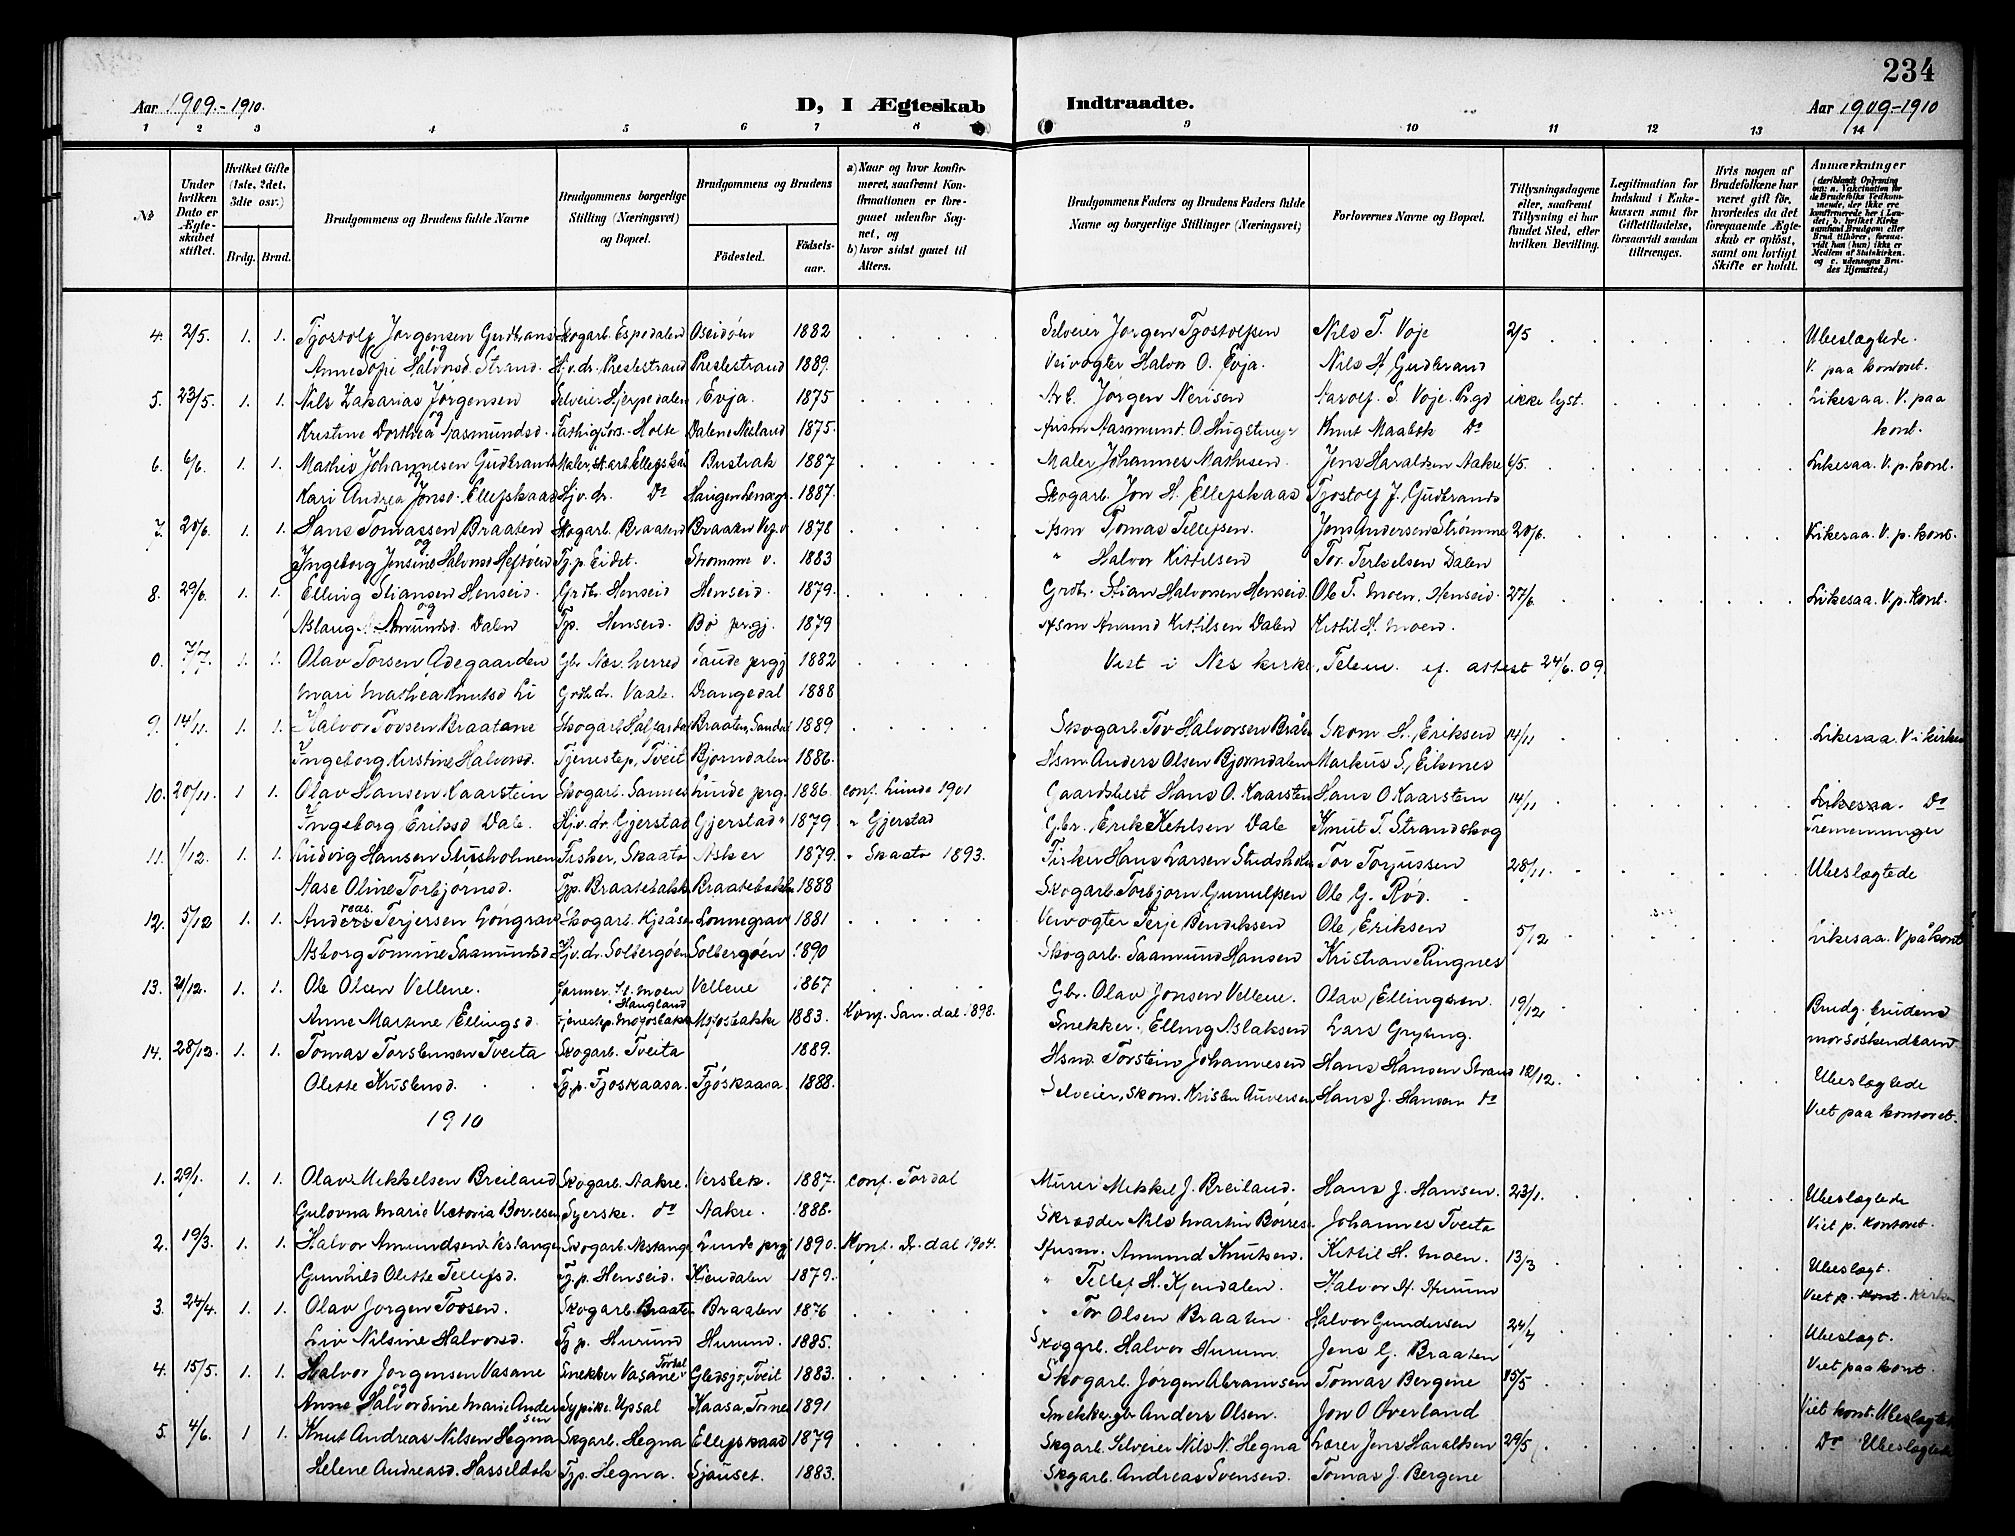 234
Aar 1909.-1910. D, I Ægteskab Indtraadte. Aar 1909.-1910
1 2 3 4 5 6 7 8 9 10 11 12 13 14
No
Under hvilken Dato er Ægteskabet stiftet.
Hvilket Gifte (1ste, 2det, 3die osv.)
Brdg. Brud.
Brudgommens og Brudens fulde Navne
Brudgommens borgerlige Stilling (Næringsvei) og Bopæl.
Brudgommens og Brudens
Fødested. Fødselsaar.
a) Naar og hvor konfirmeret, saafremt Konfirmationen er foregaaet udenfor Sognet, og
b) hvor sidst gaaet til Alters.
Brudgommens Faders og Brudens Faders fulde Navne og borgerlige Stillinger (Næringsvei)
Forlovernes Navne og Bopæl.
Tillysningsdagene eller, saafremt Tillysning ei har fundet Sted, efter hvilken Bevilling.
Legitimation for Indskud i Enkekassen samt for Giftetilladelse, forsaavidt saadan tiltrænges.
Hvis nogen af Brudefolkene har været gift før, hvorledes da det foregaaende Ægteskab er opløst, samt om lovligt Skifte er holdt.
Anmærkninger (deriblandt Oplysning om: a. Vakcination for de Brudefolks Vedkommende, der ikke ere konfirmerede her i Landet; b. hvilket Kirkesamfund Brudgom eller Brud tilhører, forsaavidt han (hun) ikke er Medlem af Statskirken. og c. udensogns Brudes Hjemsted.)
4. 2/5 1. 1. Tjostolf Jørgensen Gudbrans Skogarb. Espedalen Oseidøen 1882 Selveier Jørgen Tjostolfsen Nils T. Voje 2/5 Ubeslægtede.
og Anne Sofie Halvorsd. Strand. Hj.v.dr. Prestestrand Prestestrand 1889. Veivogter Halvor O. Evja. Nils H. Gudbrand V. paa kontoret.
5. 23/5. 1. 1. Nils Zakarias Jørgensen Selveier Hjerpedalen Evja. 1875 Arb. Jørgen Nerisen Aasolf S. Voje. Prgd ikke lyst. Likesaa. V. paa
og Kristine Dorthea Aasmundsd. Holte Dalene 1875. Husm Aasmund O. Knut Do kont.
6. 6/6. 1. 1. Mathis Johannesen Gudbrands Maler, Bustrak 1887 Maler Johannes Mathisen. Jens Haraldsen Aakre 6/5. Likesaa. V. p. kont.
og Kari Andrea Jonsd. Ellefskaas Hj.v.dr. Do 1887. Skogarb. Jon H. Ellefskaas Tjostolf J. Gudbrands
7. 20/6. 1. 1. Hans Tomassen Braaten Skogarb. Braaten Braaten 1878 Hsm Tomas Tellefsen. Jens Andersen Strømme 20/6. Likesaa. V. p. kont.
og Ingeborg Jensine Halvorsd Heftøen Tj.p. Eidet. Strømme v. 1883 " Halvor Kittilsen Tor Terkelsen Dalen
8. 29/6. 1. 1. Elling Stiansen Henseid. Grdbr. Henseid Henseid. 1879. Grdbr. Stian Halvorsen Henseid. Ole T. Moen, Henseid. 27/6. Likesaa. V. p. kont.
og Aslaug Amundsd. Dalen Tjp. Henseid. Bø prgj. 1879 Hsm Amund Kittilsen Dalen Kittil H. Moen.
0. 7/7. 1. 1. Olav Torsen Ødegaarden Gbr. Nes herred Saude prgj 1882 Viet i Nes kirke, Telem. ef. attest 24/6. 09.
Mari Mathea Knutsd Li Grdb.dr. Vaale. Drangedal 1888
9. 14/11. 1. 1. Halvor Tovsen Braatane Skogarb. Braaten, 1889 Skogarb. Tov Halvorsen Skom H. Eriksen 14/11 Likesaa. V i kirken
Ingeborg Kristine Halvorsd. Tjenestep, Tveit Bjorndalen 1886. Hsm. Anders Olsen Bjorndalen Markus S. Eiknes
10. 20/11. 1 1. Olav Hansen Kaarstein Skogarb. Sannes Lunde prg. 1886 conf. Lunde 1901 Gaardsbest Hans O. Kaarsten Hans O Kaarsten 14/11 Likesaa. Do
Ingeborg Eriksd Dale. Hj.v.dr. Gjerstad Gjerstad " 1879. " Gjerstad Gbr. Erik Dale Knut T. Strandskog Tremenninger
11. 1/12. 1. 1. Ludvig Hansen Stusholmen Fisker, Skaatø Asker 1879. " Skaatø 1893. Fisker Hans Larsen Tor Torjussen 28/11. Ubeslægtede
Aase Oline Torbjørnsd. Tjp. Braatebakk 1888 Skogarb. Torbjorn Gunulfsen Ole G. Rød.
12. 5/12 1. 1. Andreas Terjersen Løngrav Skogarb. Lonnegrav 1881 Veivogter Terje Bendiksen Ole Eriksen 5/12 Likesaa. V på kont
Asborg Tomine Saamundsd. Hj.v.dr. Solbergøen Solbergøen 1890 Skogarb. Saamund Hansen Kristian Ringnes
13. 21/12. 1. 1. Ole Olsen Vellene. Farmer. Vellene 1867 Gbr. Olav Jonsen Vellene. Olav Ellingsen. 19/12 Brudg. brudens
Anne Martine Ellingsd. Haugland 1883. Konf. San.dal. 1898. Snekker. Elling Aslaksen Lars morsøskendbarn
14. 28/12. 1. 1. Tomas Torstensen Tveita Skogarb. Tveita 1889. Hsm. Torstein Johannesen Hans Hansen Strand 12/12. Ubeslægtede
Olette Kristensd. Tj.p. Fjoskaasa. Fjøskaasa. 1888. Selveier, Skom. Kristen Hans J. Hansen Do Viet paa kontoret.
1910
1. 29/1. 1. 1. Olav Mikkelsen Breiland Skogarb. Aakre. 1887. conf. Tørdal Murer Mikkel J. Breiland. Hans J. Hansen. 23/1. Ubeslægtede
Gulovna Marie Victoria Borresen Syerske. do Aakre. 1886. Skrædder Nils Martin Johannes Tveita Viet p. kontoret.
2. 19/3. 1. 1. Halvor Amundsen Skogarb. Lunde prgj 1890. Konf. Dr.dal 1904. Husm. Amund Knutsen. Kittil H. Moen. 13/3 Ubeslægt.
Gunhild Olette Tellefsd. Tj.p. Henseid. Kiendalen 1879. " Tellef H. Kjendalen. Halvor H. Hurum Viet p. kont. Kirken
3. 24/4. 1. 1. Olav Jorgen Tovsen. Skogarb. Braaten Braaten 1876 " Tor Olsen Braaten. Halvor Gundersen 24/4 Ubeslægt.
Liv Nilsine Halvorsd. Tj p. Hurund Hurund. 1885. Skogarb. Halvor Hurum. Jens G. Braaten Viet paa kont.
4. 15/5. 1. 1. Halvor Jorgensen Vasane Snekker Vasane Tørdal Gledsjo, Tveit 1883. Skogarb. Jørgen Abramsen Tomas Bergene 15/5 Viet kont. Ubeslægtede
og Anne Halvordine Marie Andersen Sypike. Upsal Kaasa, 1891 Snekker. gbr Anders Olsen. Jon O Øverland
5. 4/6. 1 1. Knut Andreas Nilsen Hegna Skgarb. Hegna Ellefskaas 1879 Skgarb. Selveier Nils N. Hegna Lærer Jens Haraldsen 29/5 Do Ubeslægtede
Helene Andreasd. Hasseldok Tjp. Hegna. 1883. Skgarb. Andreas Svensen. Tomas J. Bergene